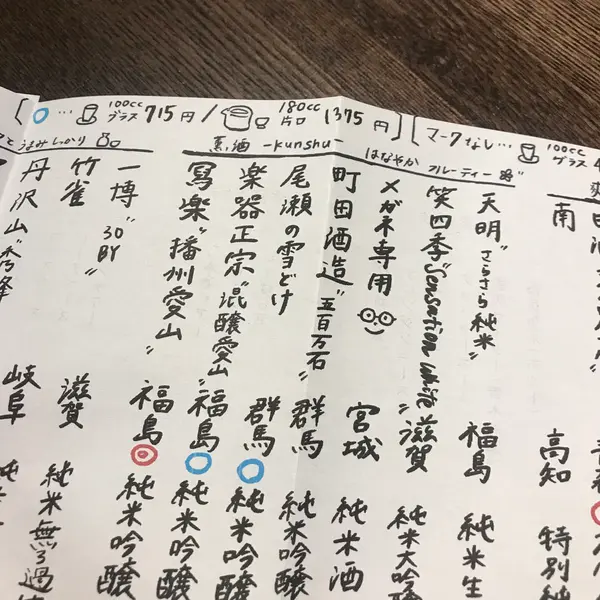 [○… 100cc グラス 715円 / 180cc 片口 1375円]
[マークなし… 100cc グラス
うまみしっかり
薫酒 -kunshu- はなやか フルーティー
南 高知 特別純
天明 "さらさら純米" 福島 純米生
笑四季 "Sensation white" 滋賀 純米大吟醸
メガネ専用 宮城 純米酒
町田酒造 "五百万石" 群馬 純米吟醸
尾瀬の雪どけ 群馬 純米吟醸
楽器正宗 "混醸愛山" 福島 純米吟醸
寫楽 "播州愛山" 福島 純米吟醸
一博 "30BY" 滋賀 純米無ろ過
竹雀 岐阜 純米
丹沢山 "秀峰